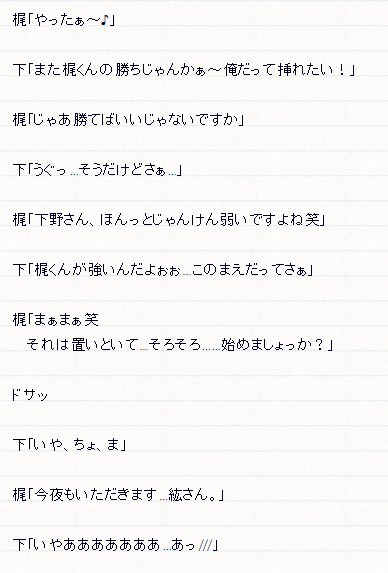 梶「やったぁ～♪」
下「また梶くんの勝ちじゃんかぁ～俺だって挿れたい！」
梶「じゃあ勝てばいいじゃないですか」
下「うぐっ…そうだけどさぁ…」
梶「下野さん、ほんっとじゃんけん弱いですよね笑」
下「梶くんが強いんだよぉぉ…このまえだってさぁ」
梶「まぁまぁ笑
それは置いといて…そろそろ……始めましょっか？」
ﾄﾞサッ
下「いや、ちょ、ま」
梶「今夜もいただきます…紘さん。」
下「いやあああああああ…あっ///」